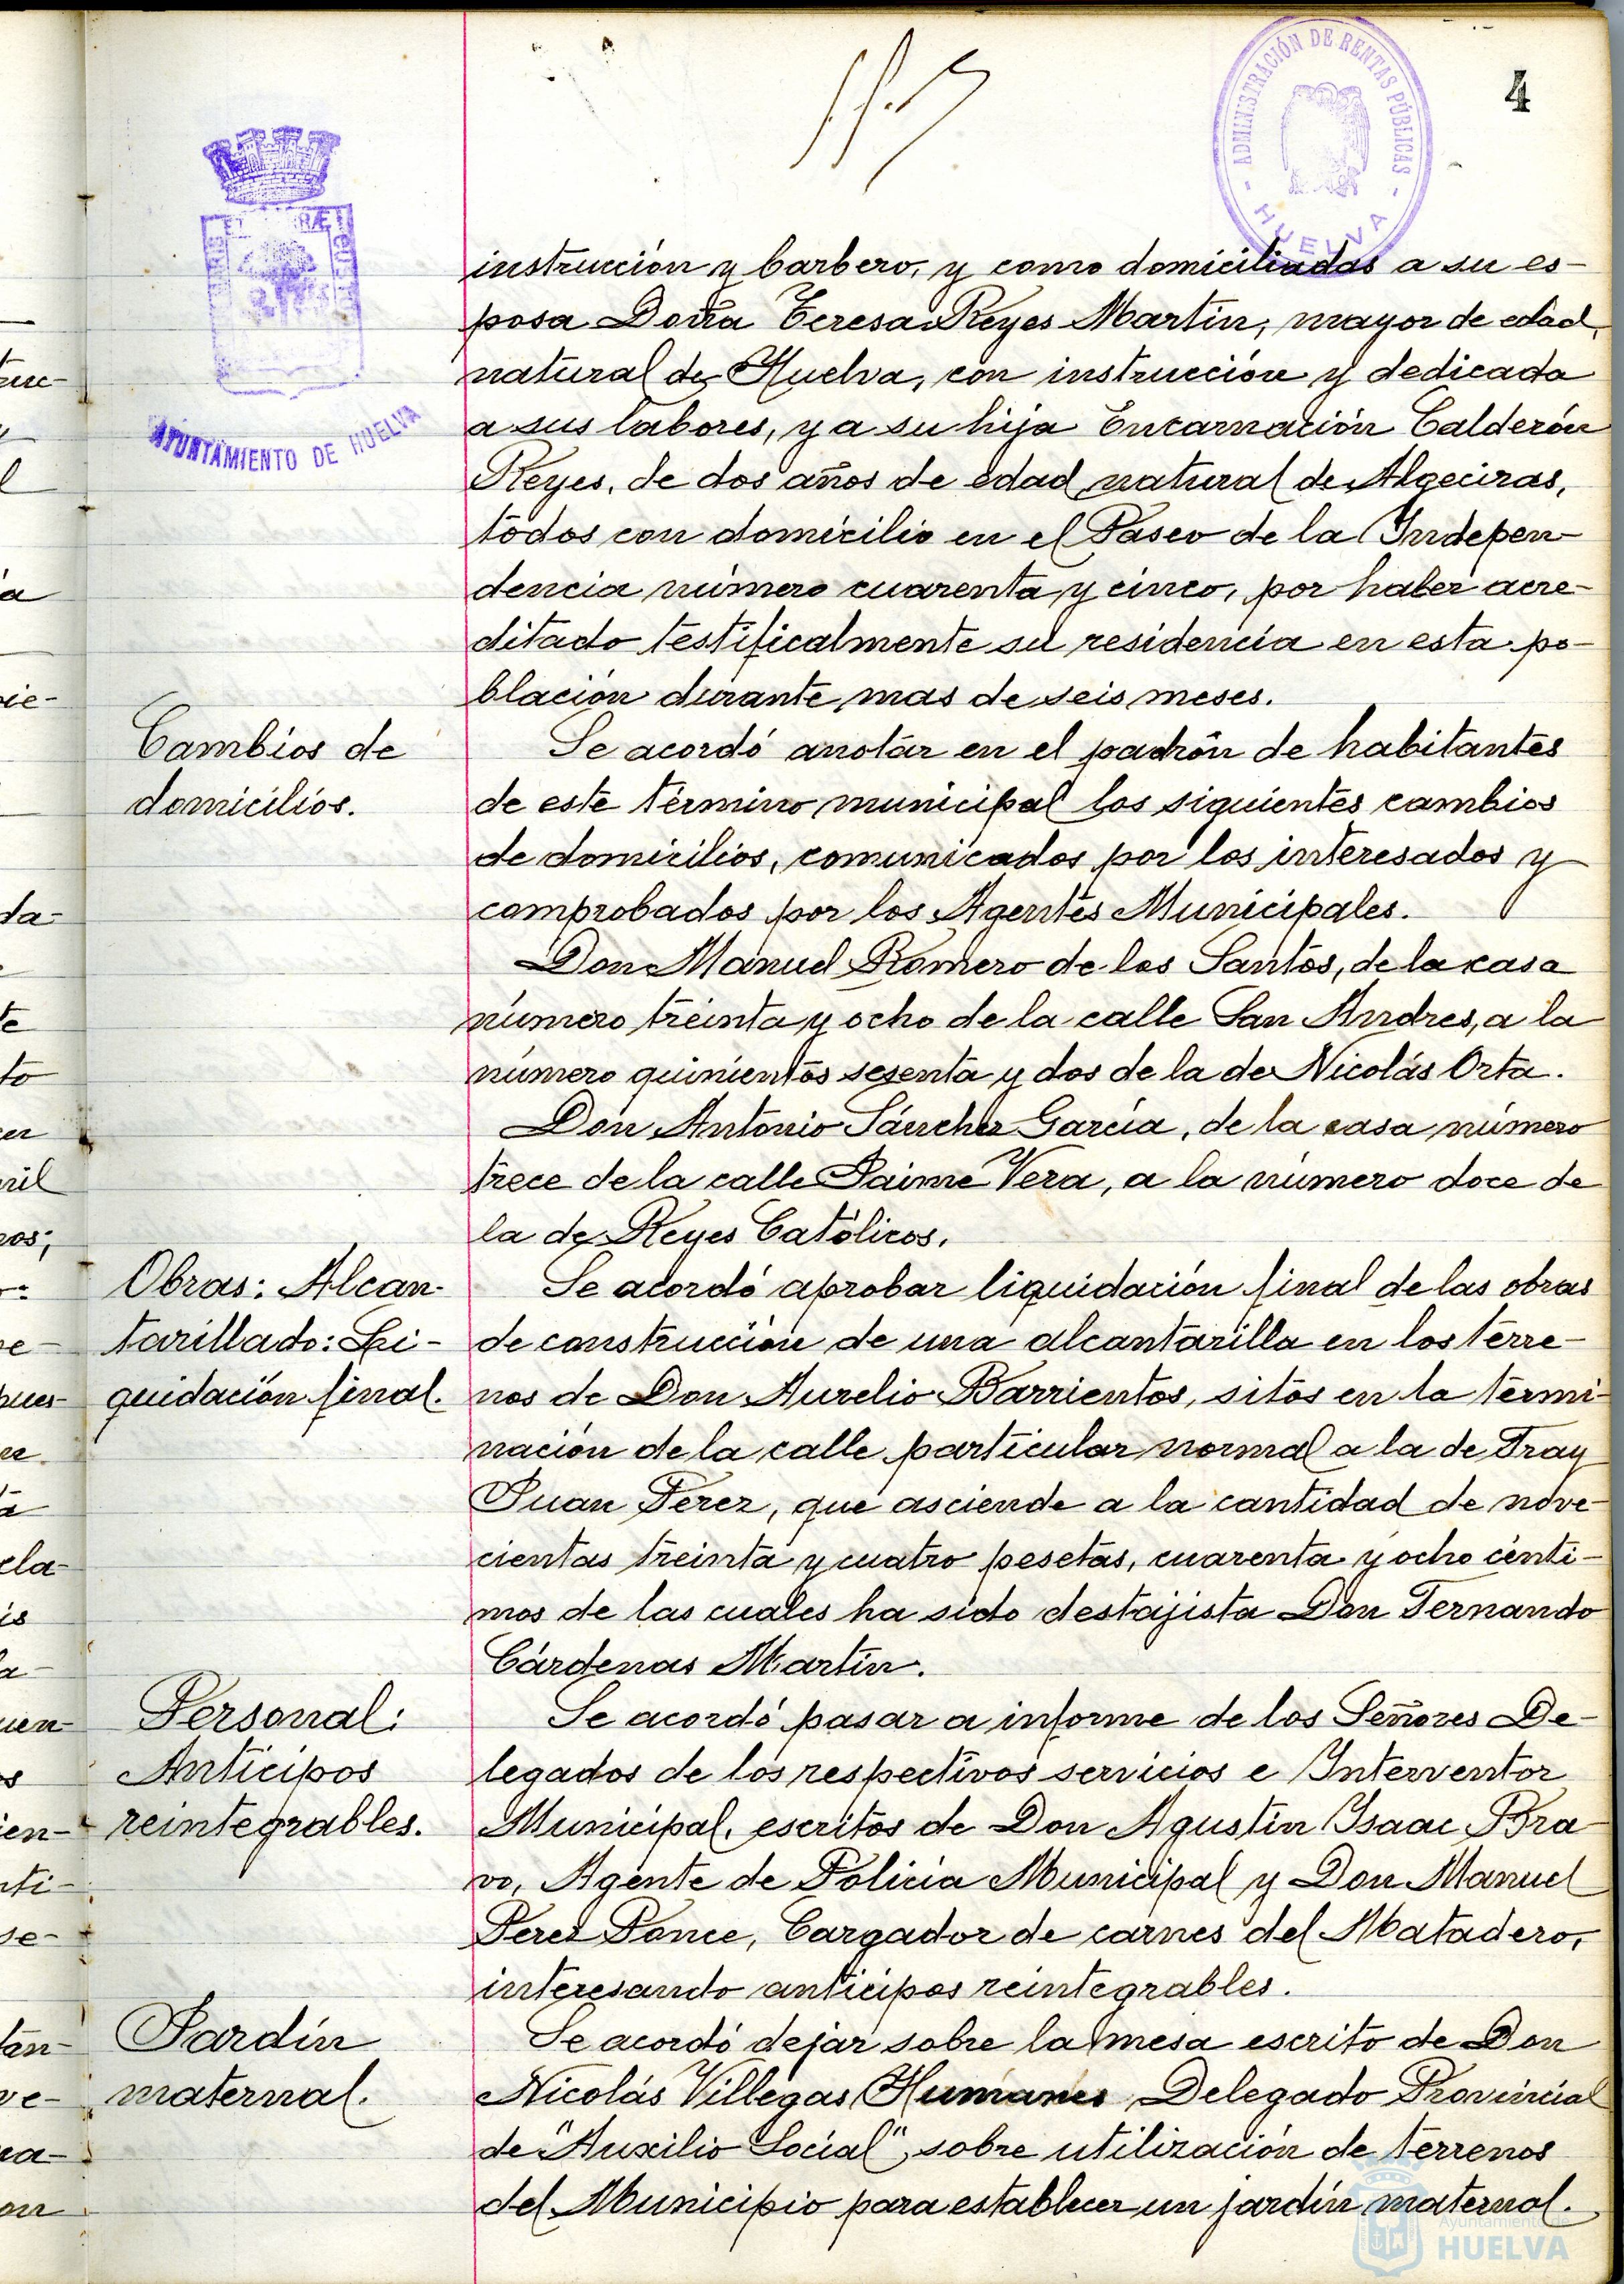 4
ADMINISTRACIÓN DE RENTAS PÚBLICAS
HUELVA
AYUNTAMIENTO DE HUELVA
instrucción y barbero, y como domiciliadas a su es-
posa Doña Teresa Reyes Martín, mayor de edad,
natural de Huelva, con instrucción y dedicada
a sus labores, y a su hija Encarnación Calderón
Reyes, de dos años de edad natural de Algeciras,
todos con domicilio en el Paseo de la Indepen-
dencia número cuarenta y cinco, por haber acre-
ditado testificalmente su residencia en esta po-
blación durante mas de seis meses.
Cambios de
domicilios.
Se acordó anotar en el padrón de habitantes
de este término municipal los siguientes cambios
de domicilios, comunicados por los interesados y
comprobados por los Agentes Municipales.
Don Manuel Romero de los Santos, de la casa
número treinta y ocho de la calle San Andres, a la
número quinientos sesenta y dos de la de Nicolás Orta.
Don Antonio Sánchez García, de la casa número
trece de la calle Jaime Vera, a la número doce de
la de Reyes Católicos.
Obras: Alcan-
tarillado: Li-
quidación final.
Se acordó aprobar liquidación final de las obras
de construcción de una alcantarilla en los terre-
nos de Don Aurelio Barrientos, sitos en la termi-
nación de la calle particular normal a la de Fray
Juan Perez, que asciende a la cantidad de nove-
cientas treinta y cuatro pesetas, cuarenta y ocho cénti-
mos de las cuales ha sido destajista Don Fernando
Cárdenas Martín.
Personal:
Anticipos
reintegrables.
Se acordó pasar a informe de los Señores De-
legados de los respectivos servicios e Interventor
Municipal, escritos de Don Agustín Isaac Bra-
vo, Agente de Policía Municipal y Don Manuel
Perez Ponce, Cargador de carnes del Matadero,
interesando anticipos reintegrables.
Jardín
maternal.
Se acordó dejar sobre la mesa escrito de Don
Nicolás Villegas Humanes Delegado Provincial
de "Auxilio Social", sobre utilización de terrenos
del Municipio para establecer un jardín maternal.
Ayuntamiento de
HUELVA